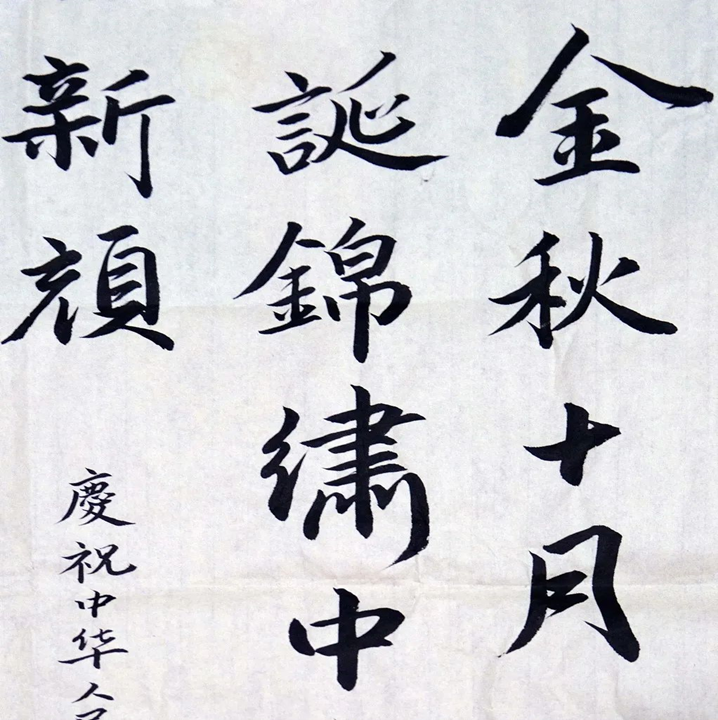 金秋十月
誕錦繡中
新顔
慶祝中华人